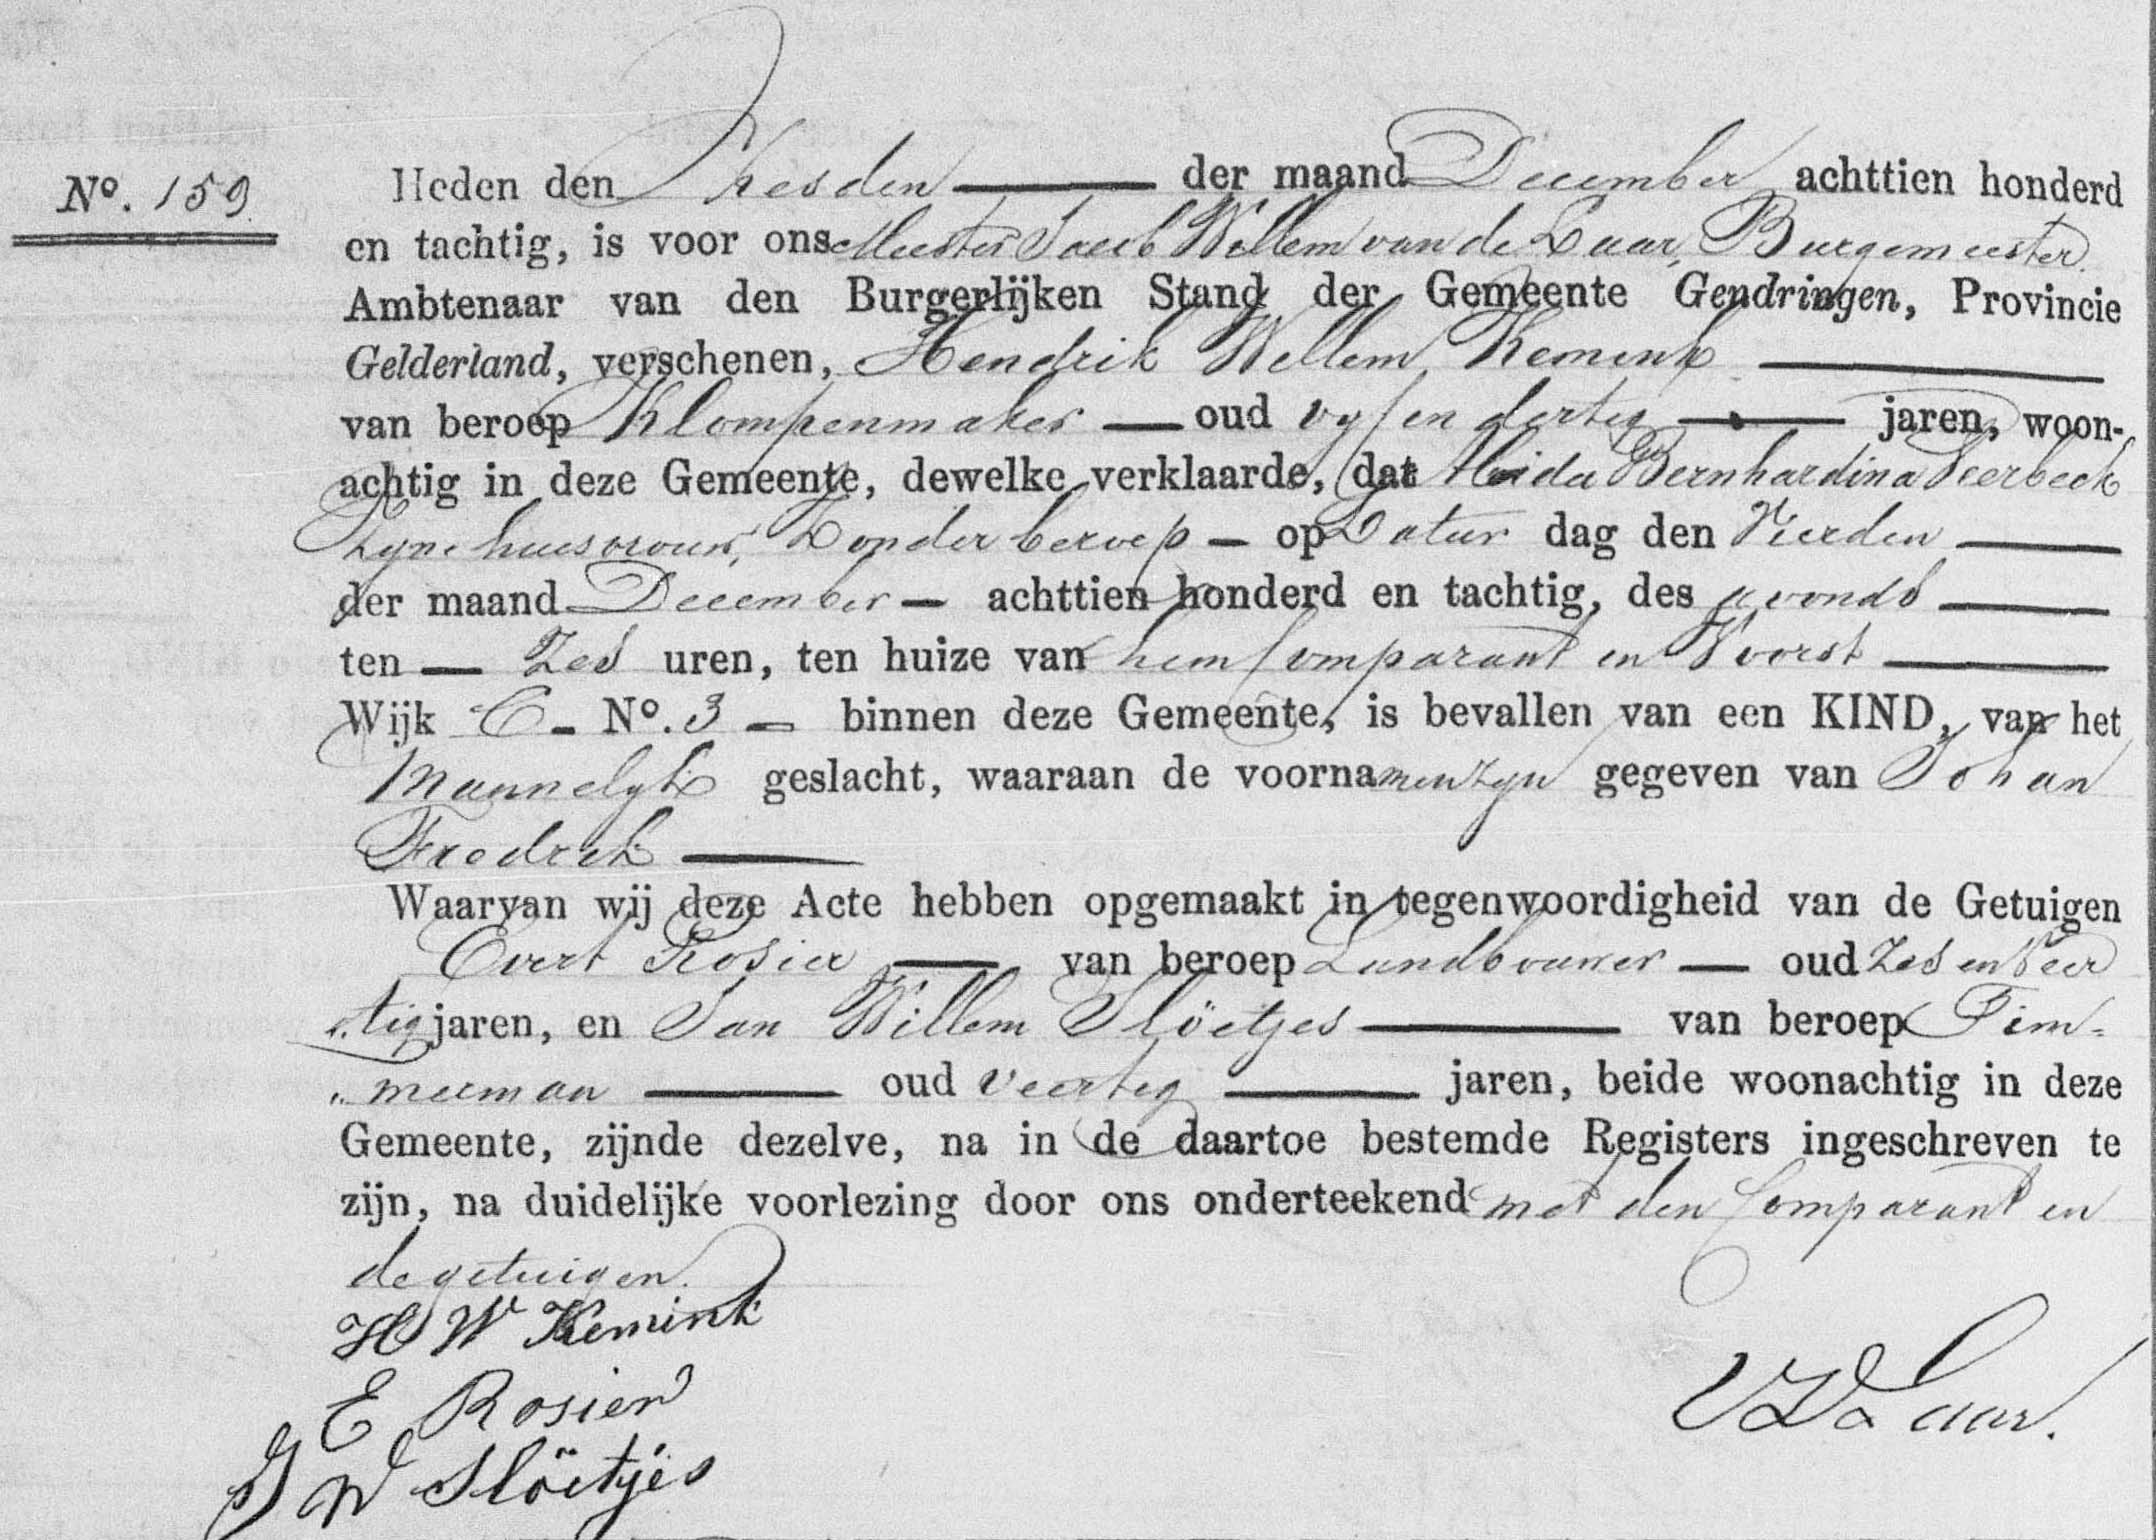 No. 159
Heden den Zesden der maand December achttien honderd
en tachtig, is voor ons Meester Jacob Willem van de Laar, Burgemeester.
Ambtenaar van den Burgerlijken Stand der Gemeente Gendringen, Provincie
Gelderland, verschenen, Hendrik Willem Kemink
van beroep Klompenmaker — oud vyf en dertig jaren, woon-
achtig in deze Gemeente, dewelke verklaarde, dat Aleida Bernhardina Veerbeek
zyne huisvrouw, Zonder beroep — op Satur dag den Vierden
der maand December — achttien honderd en tachtig, des avonds
ten — Zes uren, ten huize van hem Comparant in Voorst
Wijk C — No. 3 — binnen deze Gemeente, is bevallen van een KIND, van het
Mannelyk geslacht, waaraan de voornamen zyn gegeven van Johan
Fredrik
Waarvan wij deze Acte hebben opgemaakt in tegenwoordigheid van de Getuigen
Evert Rosier van beroep Landbouwer — oud Zes en Veer
„tig jaren, en Jan Willem Slöetjes van beroep Tim-
„merman oud veertig jaren, beide woonachtig in deze
Gemeente, zijnde dezelve, na in de daartoe bestemde Registers ingeschreven te
zijn, na duidelijke voorlezing door ons onderteekend met den Comparant en
de getuigen.
H W Kemink
E Rosier
J W Slöetjes
VDLaar.